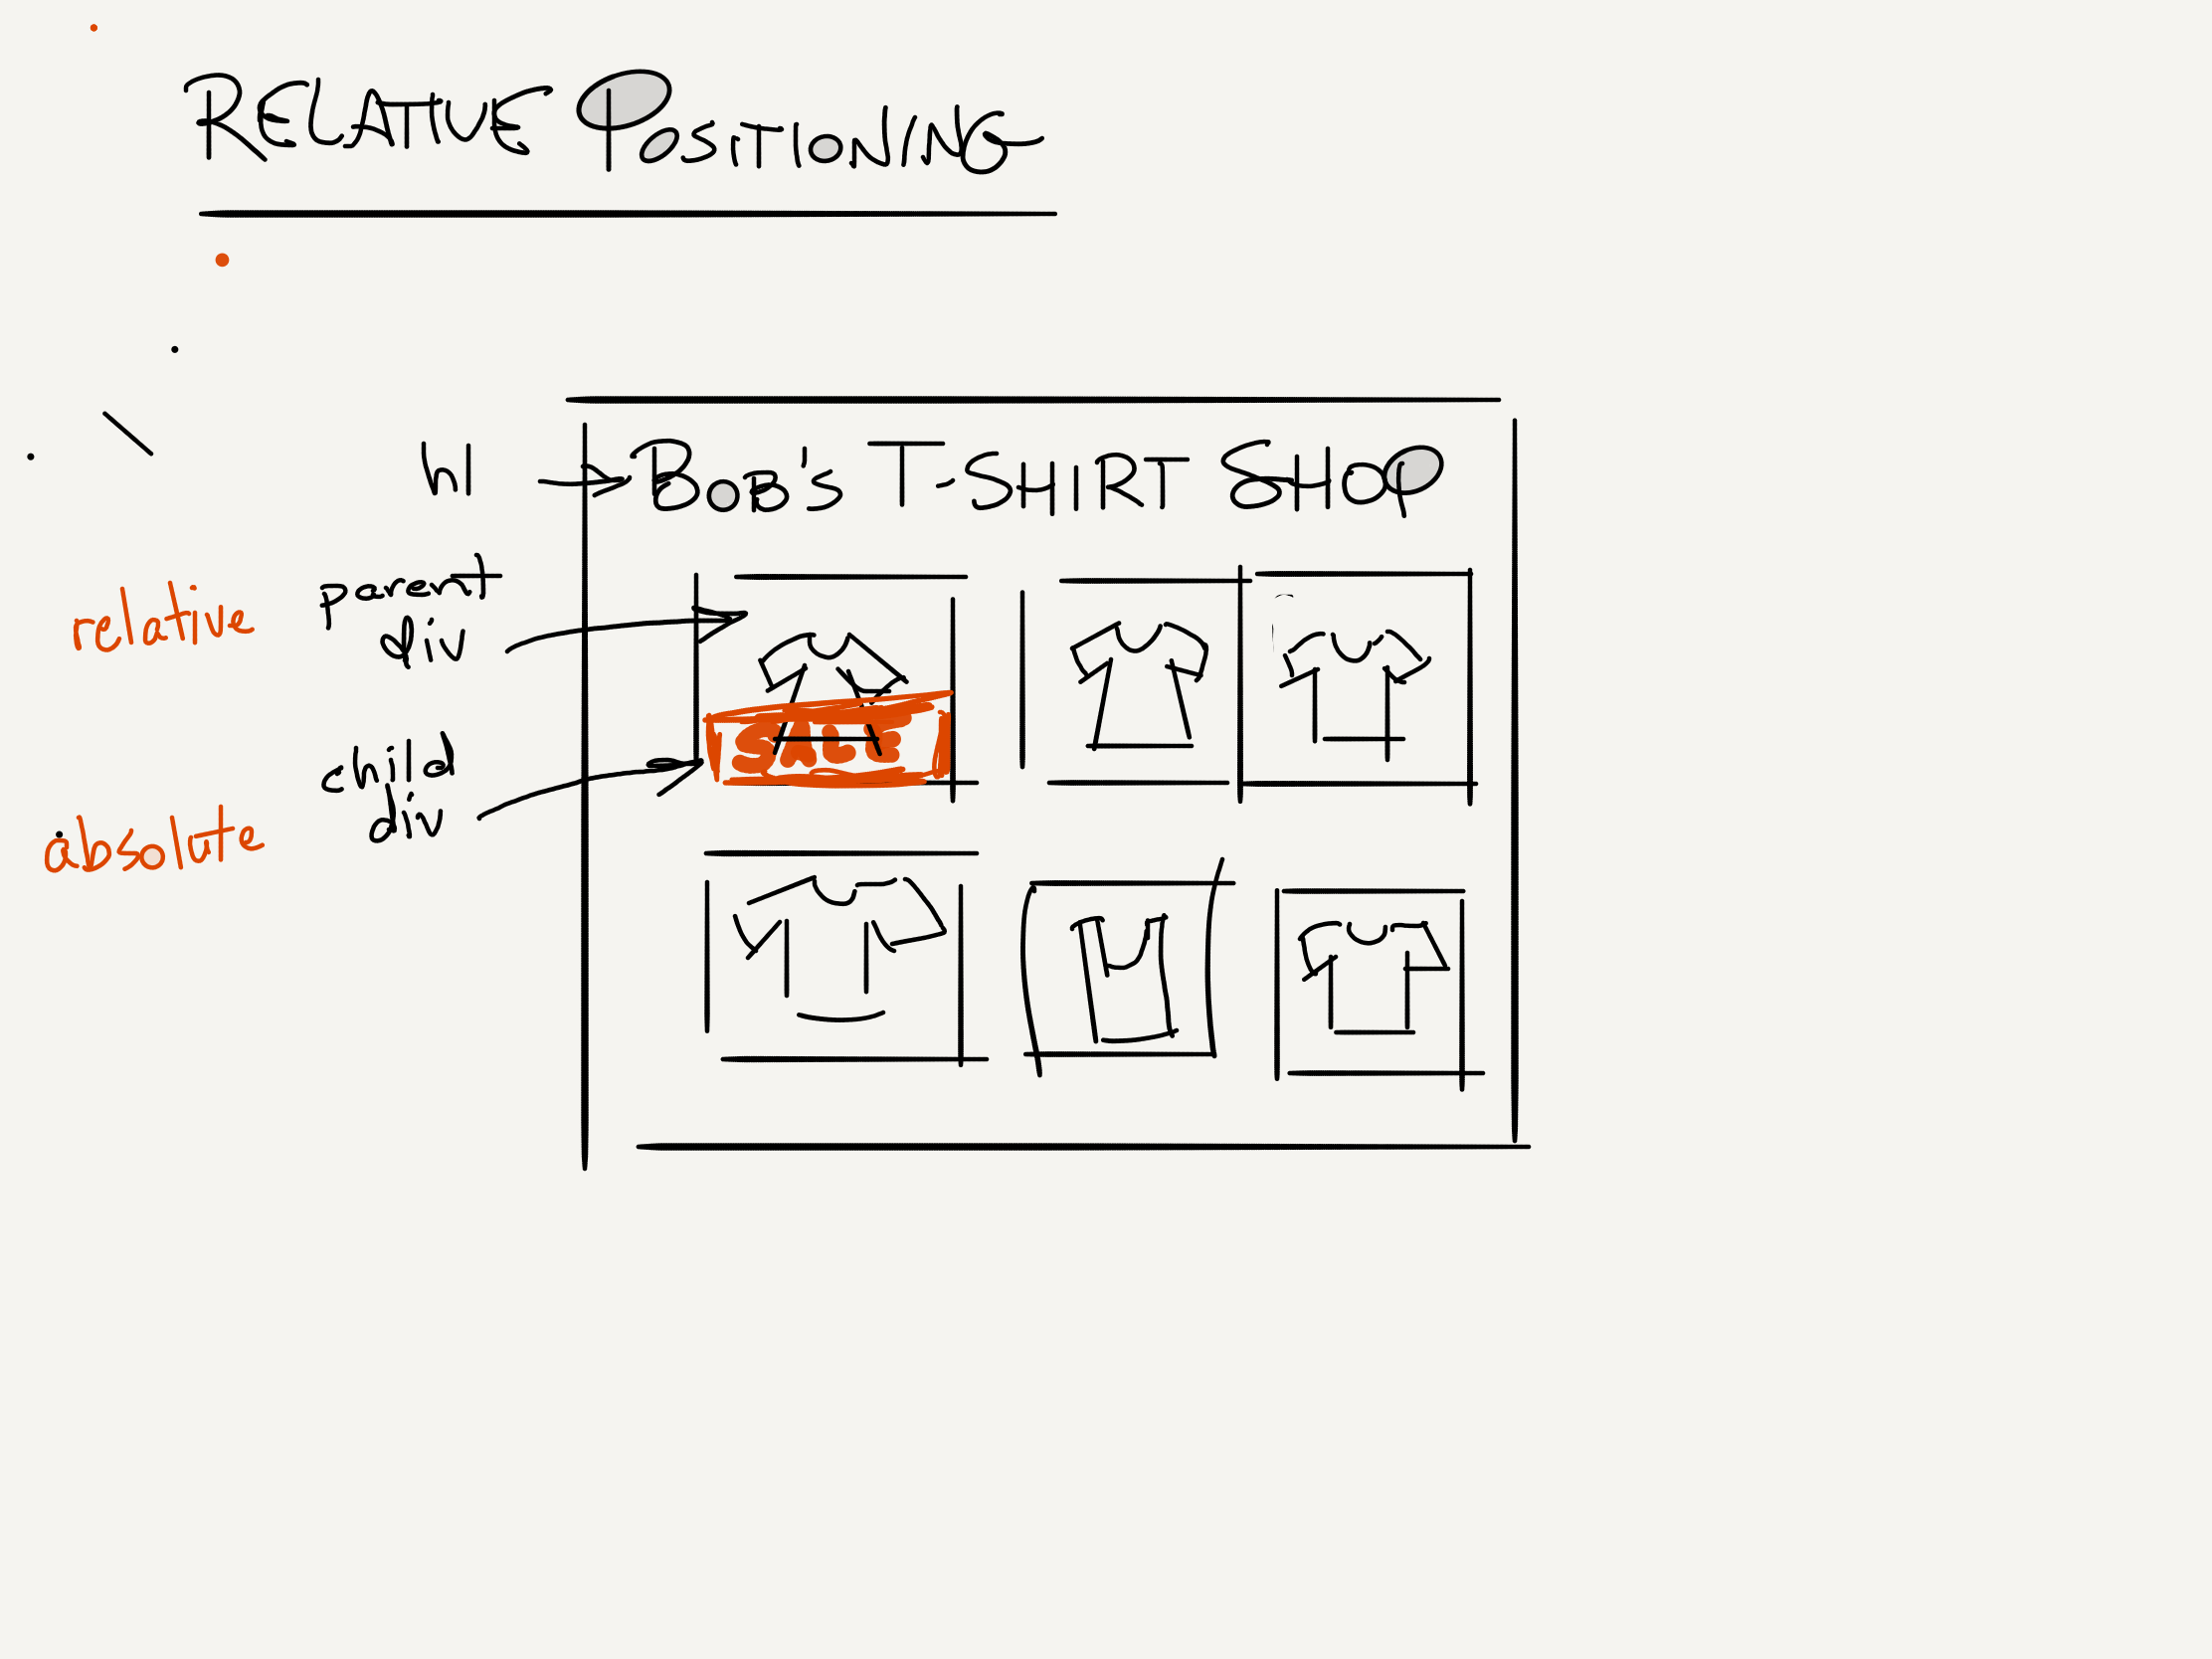 RELATIVE POSITIONING
h1
BOB'S T-SHIRT SHOP
relative
parent
div
SALE
child
div
absolute